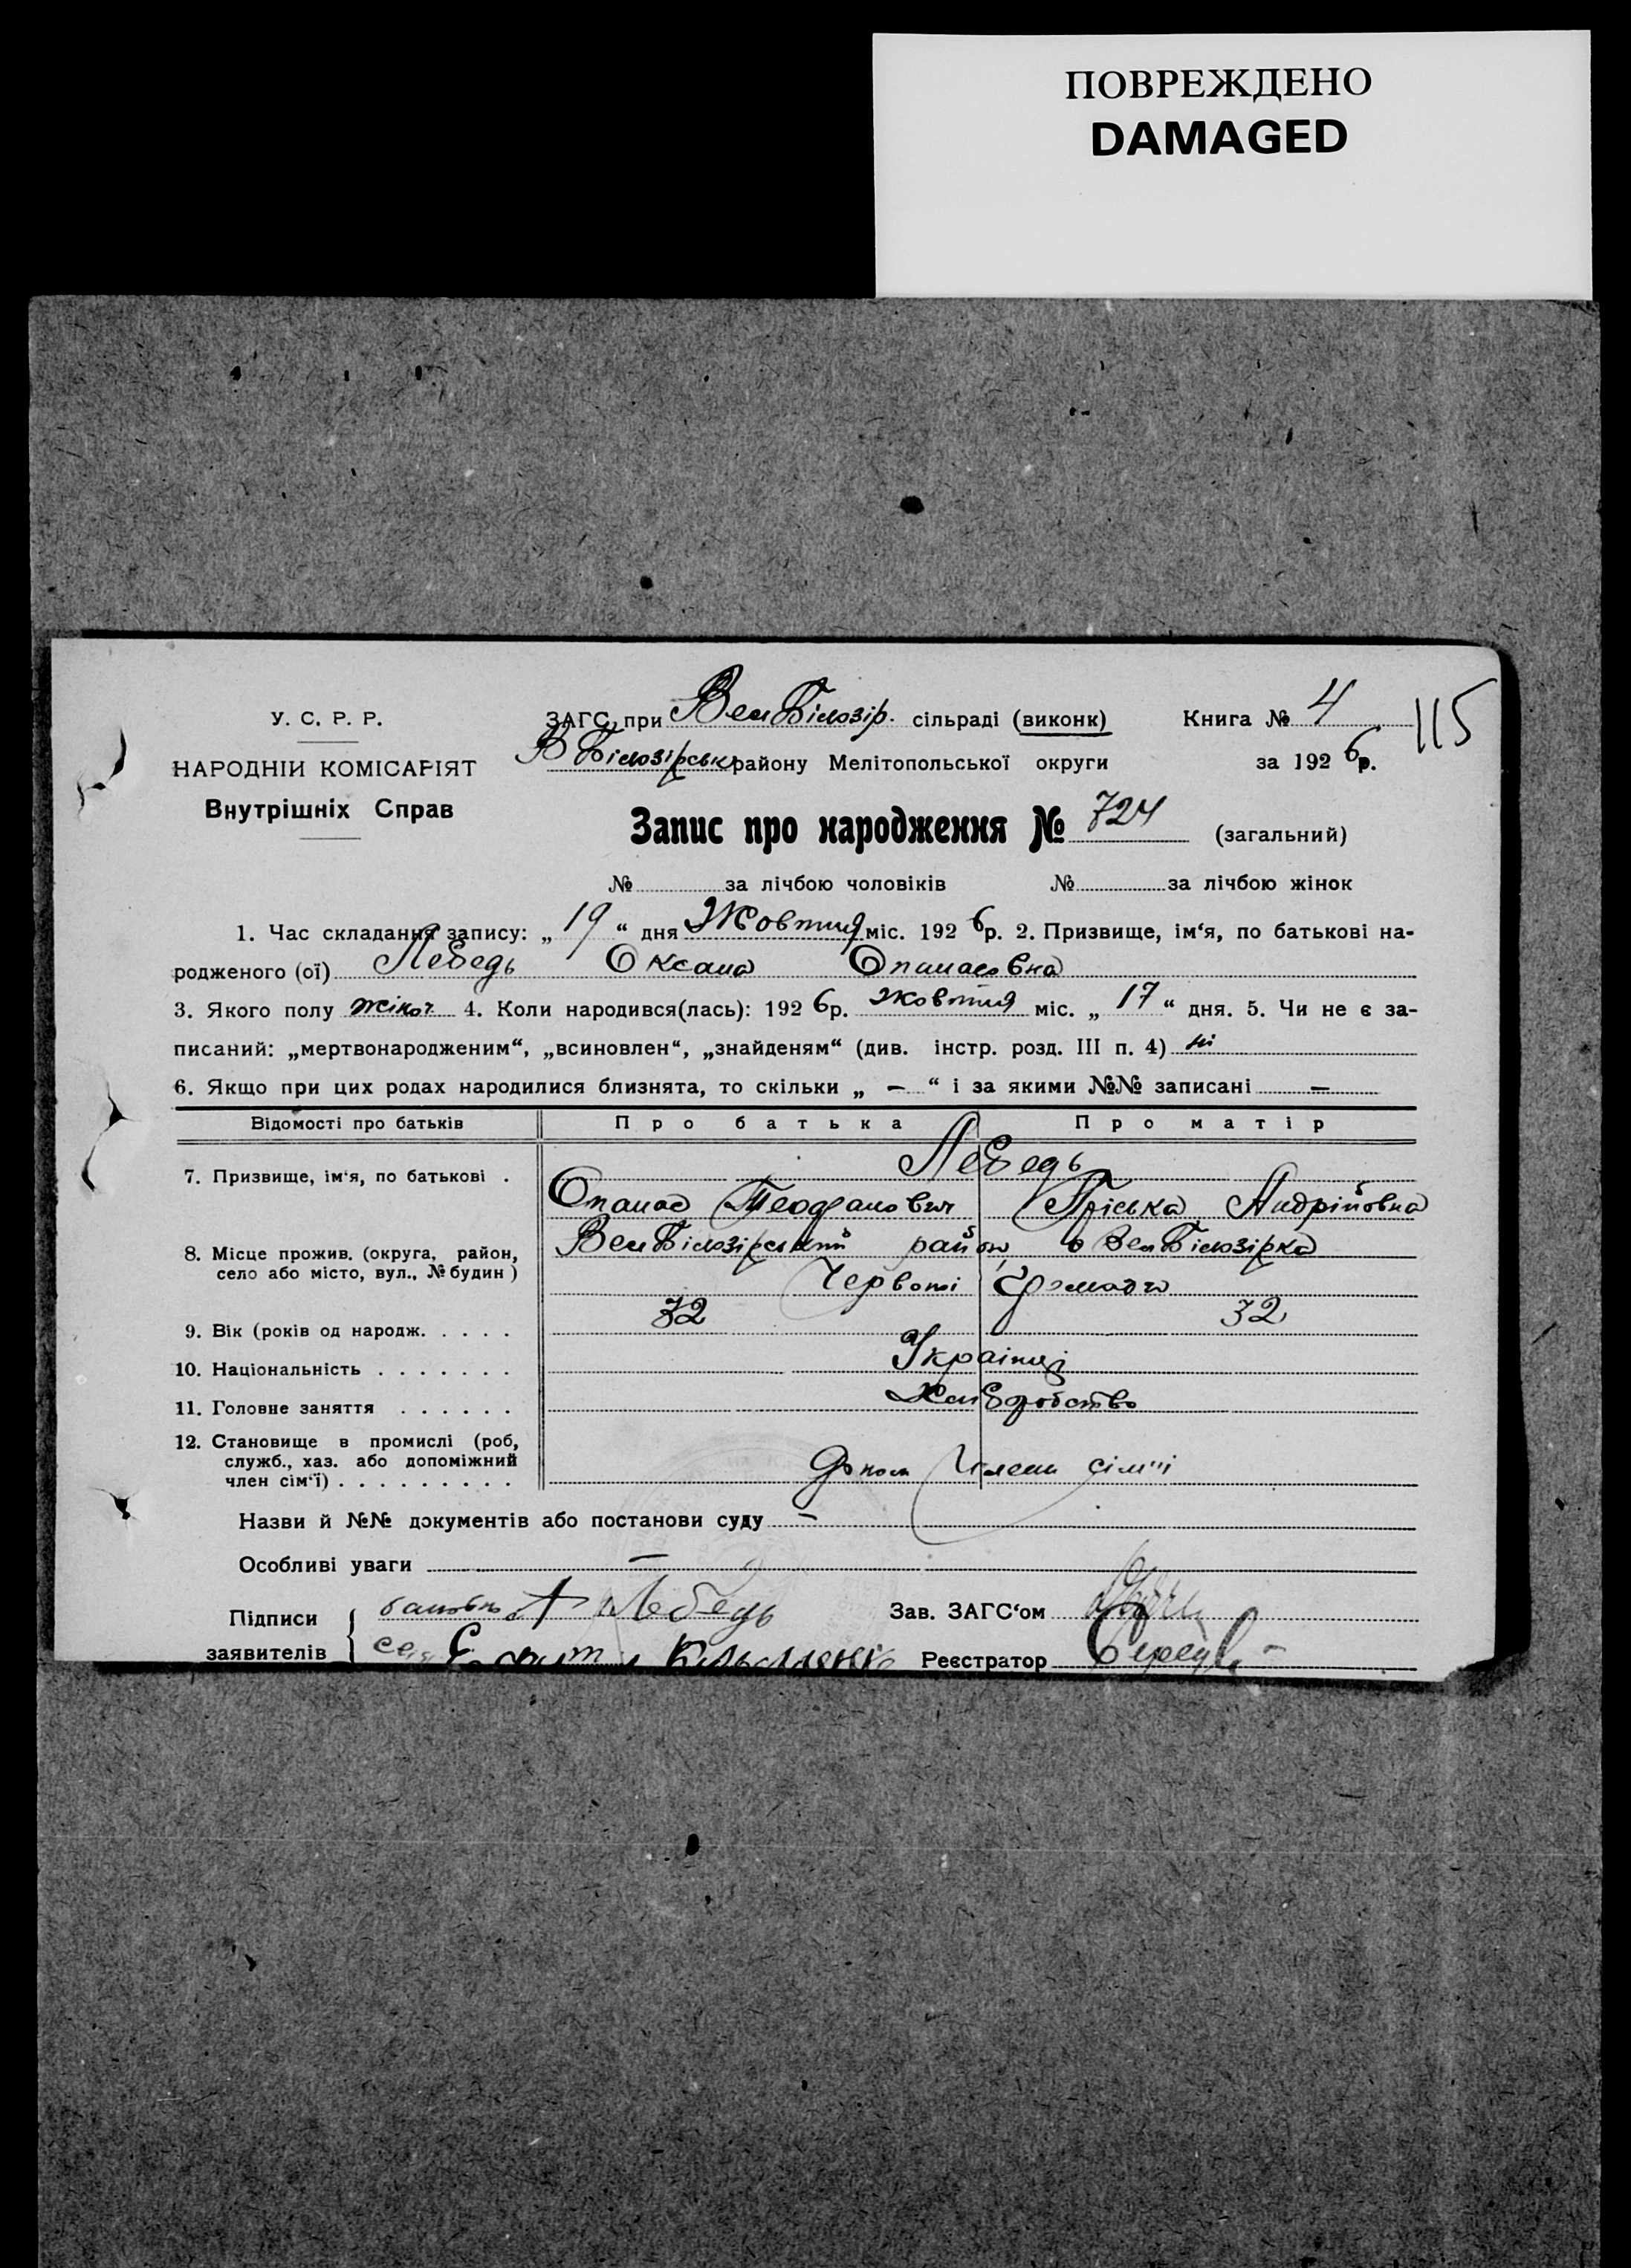 ПОВРЕЖДЕНО
DAMAGED
115
У. С. Р. Р.
НАРОДНІЙ КОМІСАРІЯТ
Внутрішніх Справ
ЗАГС при Вел Білозір. сільраді (виконк) Книга № 4
В Білозірськ району Мелітопольської округи за 1926 р.
Запис про народження № 724 (загальний)
№ за лічбою чоловіків № за лічбою жінок
1. Час складання запису: „19“ дня Жовтня міс. 1926 р. 2. Призвище, ім‘я, по батькові на-
родженого (ої) Лебедь Оксана Опанасовна
3. Якого полу жіноч 4. Коли народився(лась): 1926 р. Жовтня міс. „17“ дня. 5. Чи не є за-
писаний: „мертвонародженим“, „всиновлен“, „знайденям“ (див. інстр. розд. III п. 4) ні
6. Якщо при цих родах народилися близнята, то скільки „ – “ і за якими №№ записані –
Відомості про батьків Про батька Про матір
Лебедь
7. Призвище, ім‘я, по батькові .
Опанас Теофанович Пріська Андрійовна
8. Місце прожив. (округа, район, Вел Білозірський район, с Вел Білозірка
село або місто, вул., № будин)
Червоні
32 32
9. Вік (років од народж. . . . .
10. Національність . . . . . . . Українці
11. Головне заняття . . . . . . Хліборобство
12. Становище в промислі (роб,
служб., хаз. або допоміжний
член сім‘ї) . . . . . . . . . Члени сім'ї
Назви й №№ документів або постанови суду –
Особливі уваги –
Підписи Лебедь Зав. ЗАГС‘ом
заявителів Реєстратор